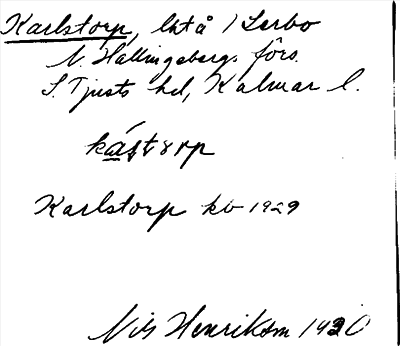 Karlstorp, lht å 1 Serbo
N. Hallingebergs förs.
S. Tjusts hd, Kalmar l.
Karlstorp kb 1929
Nils Henrikson 1930